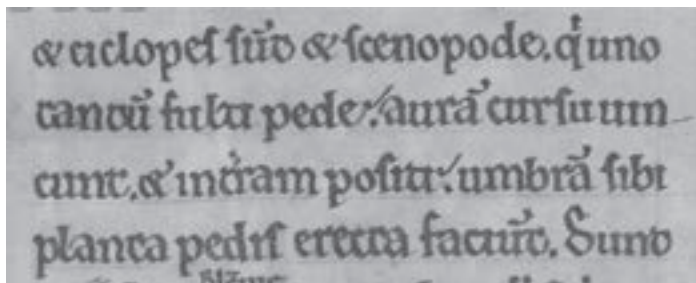 & ciclopes sūt & scenopode. q' uno
tantū fulti pede. aurā cursu uin
cunt. & in trām positi. umbrā sibi
planta pedis erecta faciūt. Sunt